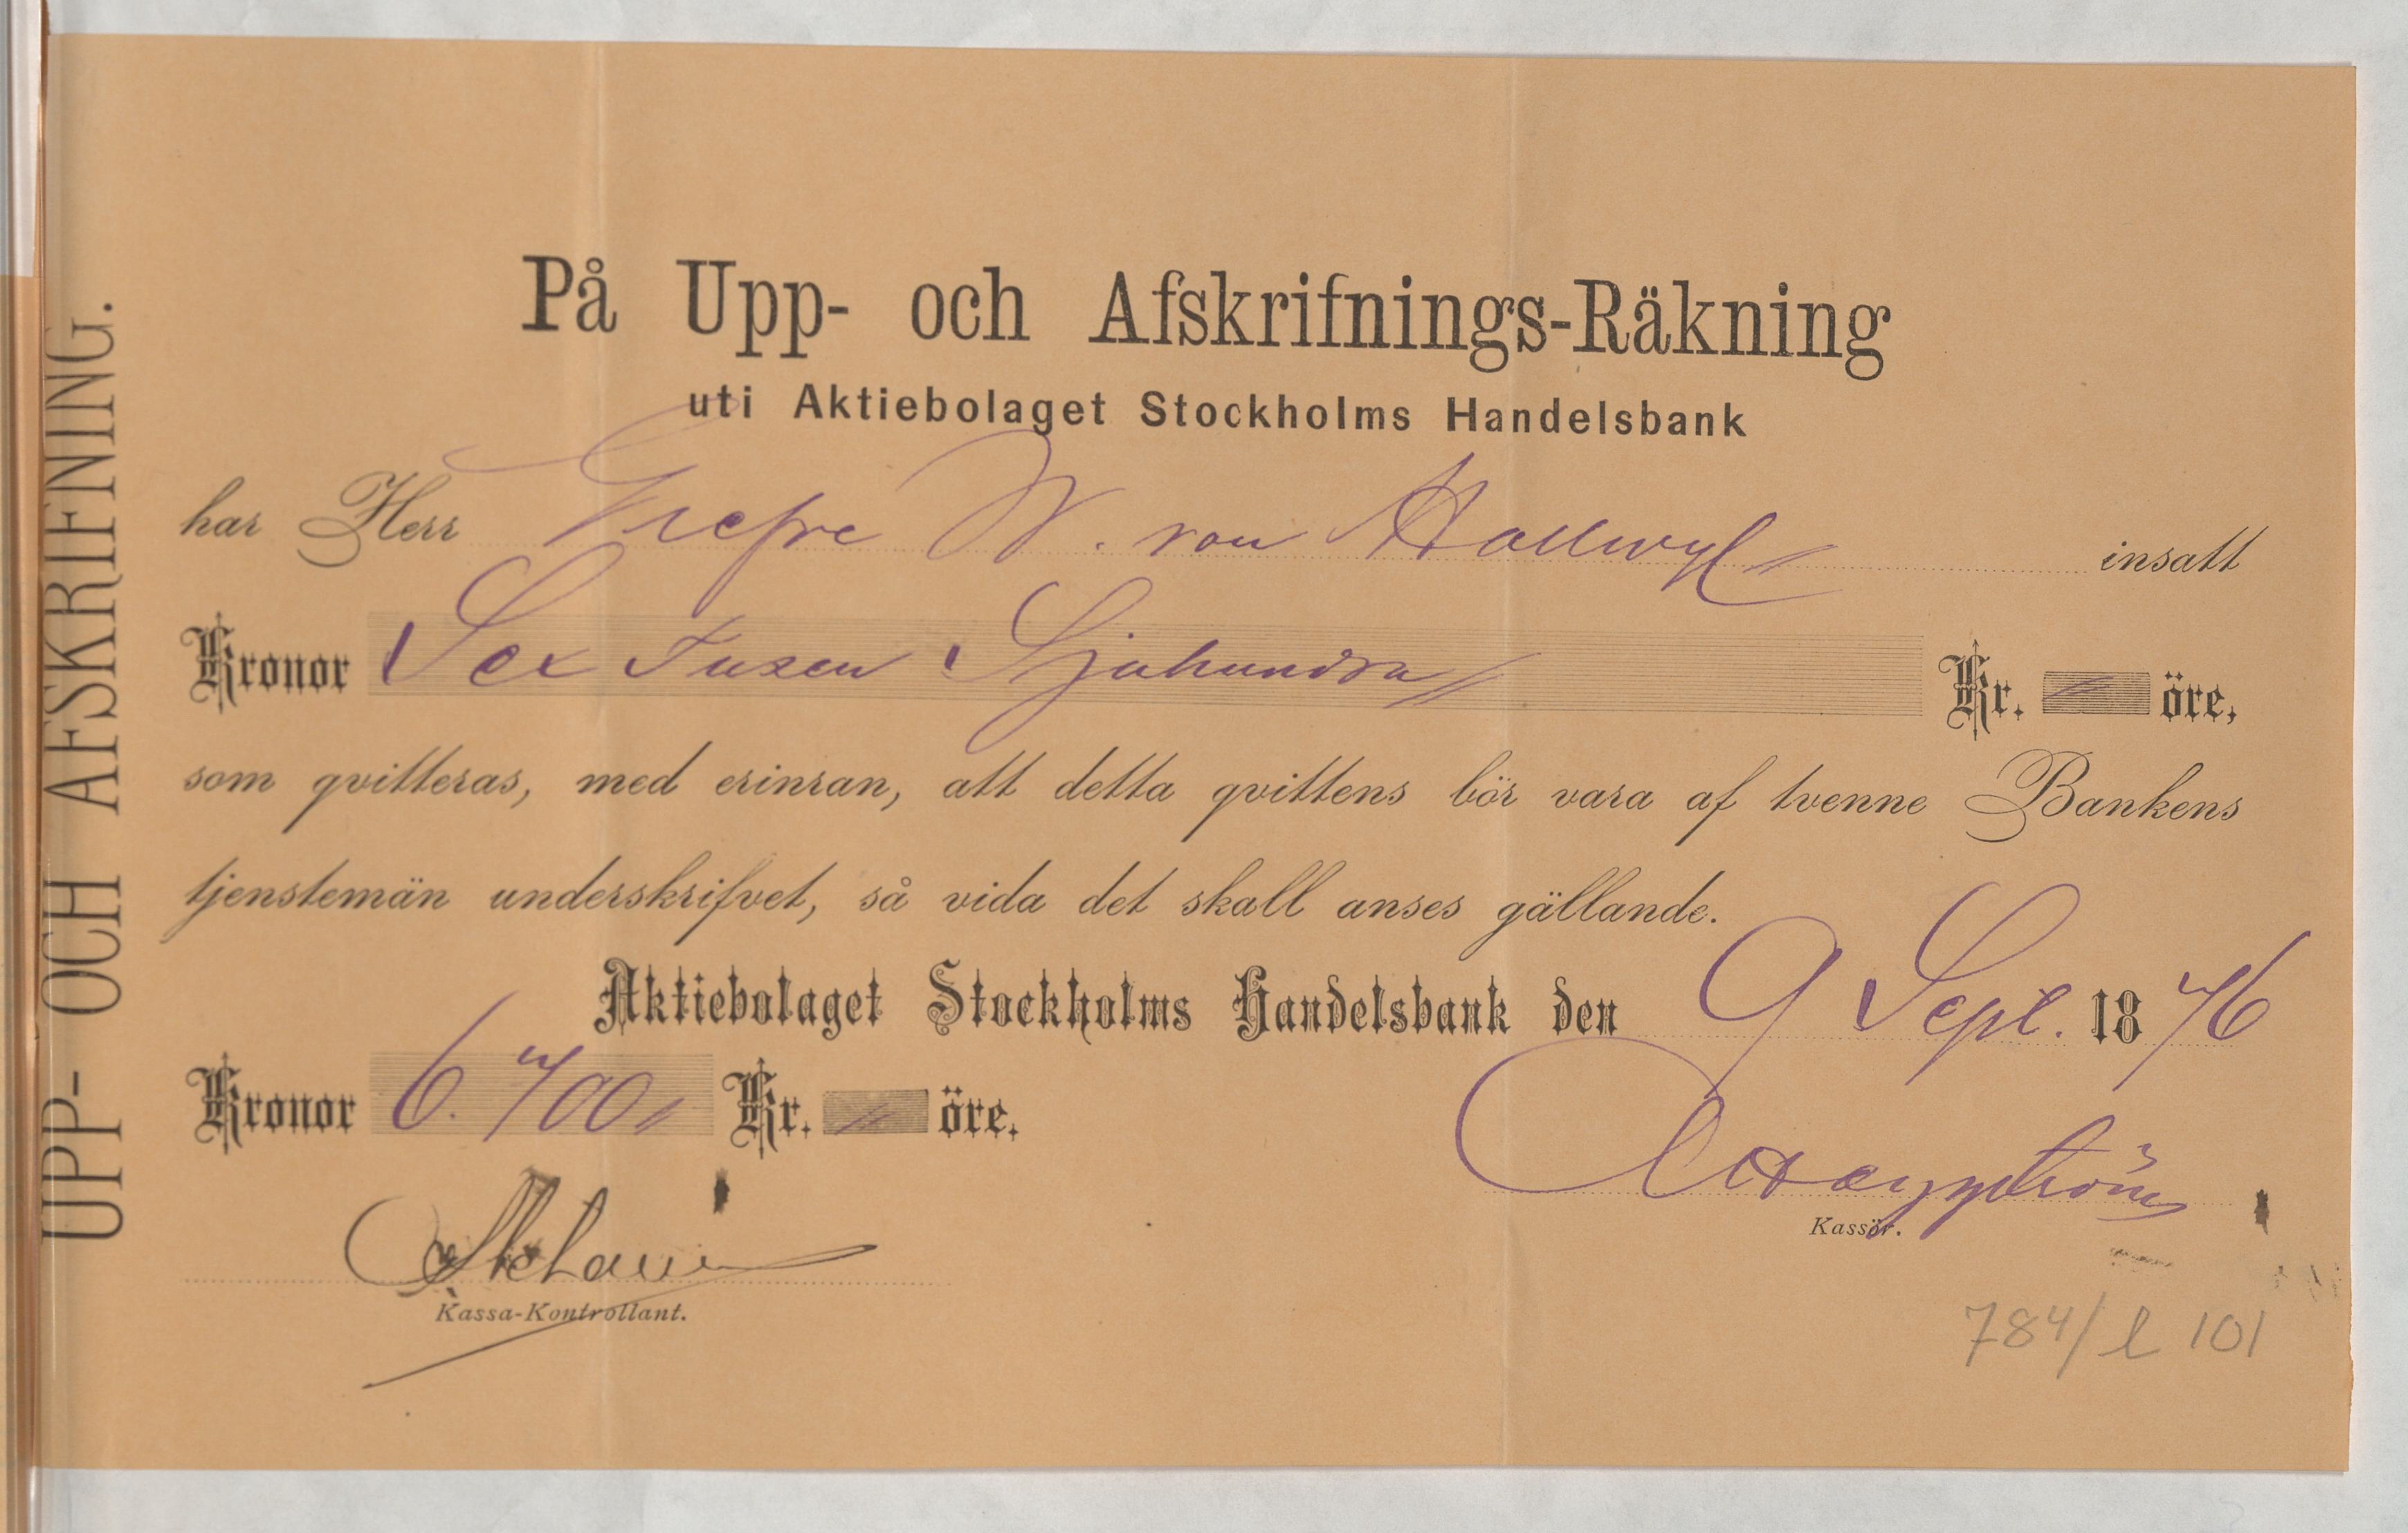 UPP- OCH AFSKRIFNING.
På Upp- och Afskrifnings-Räkning
uti Aktiebolaget Stockholms Handelsbank
har Herr Grefve W. von Hallwyl insatt
Kronor Sex Tusen Sjuhundra Kr. öre,
som qvitteras, med erinran, att detta qvittens bör vara af tvenne Bankens
tjenstemän underskrifvet, så vida det skall anses gällande.
Aktiebolaget Stockholms Handelsbank den 9 Sept. 1876
Kronor 6.700 Kr. öre.
Häggström
Kassör.
Kassa-Kontrollant.
784/l 101